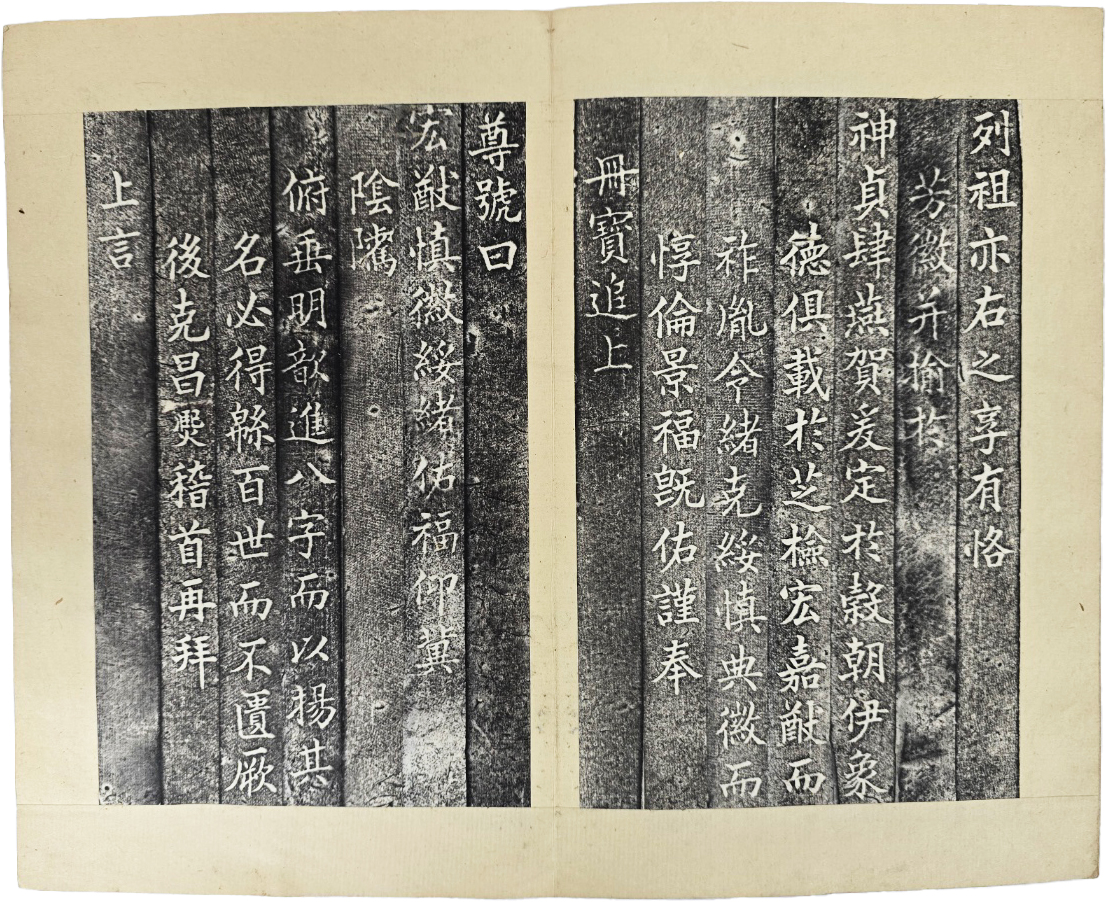 列祖亦右之享有恪
芳徽并揄於
神貞肆燕賀爰定於穀朝伊象
德俱載於芝檢宏嘉猷而
祚胤令緒克綏慎典徽而
惇倫景福既佑謹奉
冊寶追上
尊號曰
宏猷慎徽綏緒佑福仰冀
陰騭
俯垂明歆進八字而以揚其
名必得緜百世而不匱厥
後克昌煚稽首再拜
上言